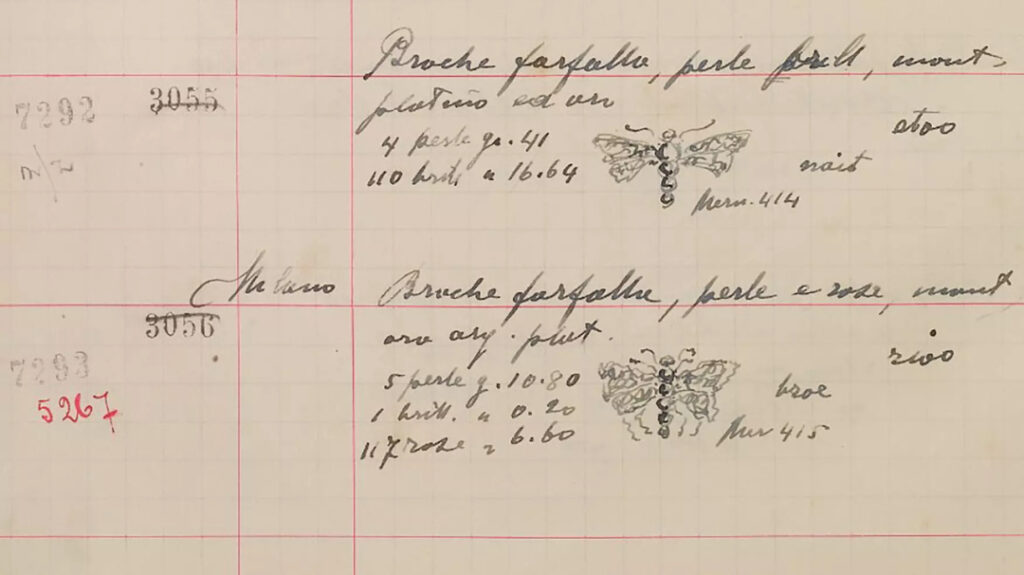 Broche farfalla, perle brill, mont.
7292 3055 platino ed oro
4 perle gr. 41
etoo
110 brill " 16.64
nait
Mem. 414
Milano Broche farfalla, perle e rose, mont
3056
7293 oro arg. plat.
rioo
5267 5 perle g. 10.80
broe
1 brill. " 0.20
117 rose " 6.60
Mer 415